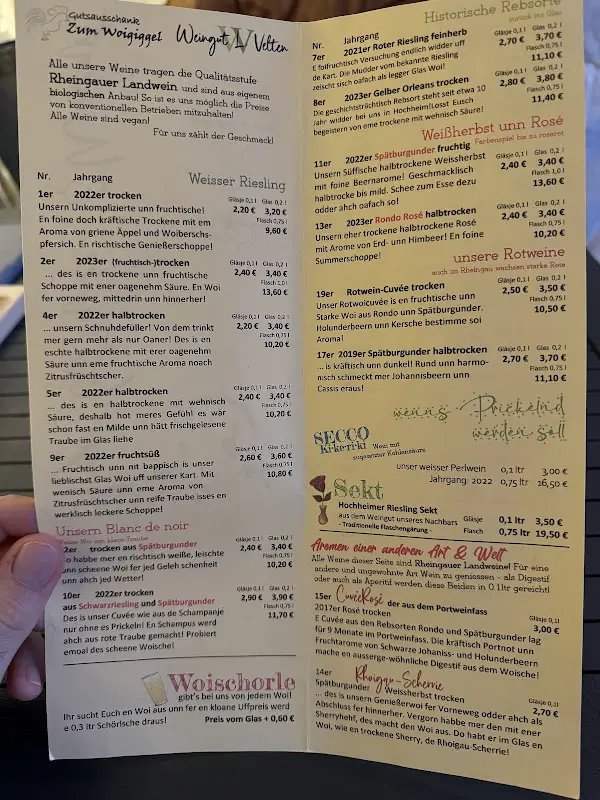 Gutsausschank
Zum Woigiggel
Weingut W Velten
Alle unsere Weine tragen die Qualitätsstufe
Rheingauer Landwein und sind aus eigenem
biologischen Anbau! So ist es uns möglich die Preise
von konventionellen Betrieben mitzuhalten!
Alle Weine sind vegan!
Für uns zählt der Geschmack!
Nr. Jahrgang Weisser Riesling
1er 2022er trocken Gläsje 0,1 l Glas 0,2 l
Unsern Unkomplizierte unn fruchtische! 2,20 € 3,20 €
En foine doch kräftische Trockene mit em Flasch 0,75 l
Aroma von griene Äppel und Woiberschs- 9,60 €
pfersich. En rischtische Genießerschoppe!
2er 2023er (fruchtisch-)trocken Gläsje 0,1 l Glas 0,2 l
... des is en trockene unn fruchtische 2,40 € 3,40 €
Schoppe mit ener oagenehm Säure. En Woi Flasch 1,0 l
fer vorneweg, mittedrin unn hinnerher! 13,60 €
4er 2022er halbtrocken Gläsje 0,1 l Glas 0,2 l
... unsern Schnuhdefuller! Von dem trinkt 2,20 € 3,40 €
mer gern mehr als nur Oaner! Des is en Flasch 0,75 l
eschte halbtrockene mit erer oagenehm 10,20 €
Säure unn eme fruchtische Aroma noach
Zitrusfrüschtscher.
5er 2022er halbtrocken Gläsje 0,1 l Glas 0,2 l
... des is en halbtrockene mit wehnisch 2,40 € 3,40 €
Säure, deshalb hot meres Gefühl es wär Flasch 0,75 l
schon fast en Milde unn hätt frischgelesene 10,20 €
Traube im Glas liehe
9er 2022er fruchtsüß Gläsje 0,1 l Glas 0,2 l
... Fruchtisch unn nit bappisch is unser 2,60 € 3,60 €
lieblischst Glas Woi uff unserer Kart. Mit Flasch 0,75 l
wenisch Säure unn eme Aroma von 10,80 €
Zitrusfrüschtscher unn reife Traube isses en
werklisch leckere Schoppe!
Unsern Blanc de noir
Weisse Woi von blaue Traube
2er trocken aus Spätburgunder Gläsje 0,1 l Glas 0,2 l
o habbe mer en rischtisch weiße, leischte 2,40 € 3,40 €
unn scheene Woi fer jed Geleh schenheit Flasch 0,75 l
unn ahch jed Wetter! 10,20 €
10er 2022er trocken Gläsje 0,1 l Glas 0,2 l
aus Schwarzriesling und Spätburgunder 2,90 € 3,90 €
Des is unser Cuvée wie aus de Schampanje Flasch 0,75 l
nur ohne es Prickeln! En Schampus werd 11,70 €
ahch aus rote Traube gemacht! Probiert
emoal des scheene Woische!
Woischorle
gibt's bei uns von jedem Woi!
Ihr sucht Euch en Woi aus unn fer en kloane Uffpreis werd
e 0,3 ltr Schörlsche draus! Preis vom Glas + 0,60 €
Historische Rebsorte
zurück ins Glas
Nr. Jahrgang
7er 2021er Roter Riesling feinherb Gläsje 0,1 l Glas 0,2 l
E foifruchtisch Versuchung endlich widder uff 2,70 € 3,70 €
de Kart. Die Mudder vom bekannte Riesling Flasch 0,75 l
zeischt sisch oafach als legger Glas Woi! 11,10 €
8er 2023er Gelber Orleans trocken Gläsje 0,1 l Glas 0,2 l
Die geschichtsträchtisch Rebsort steht seit etwa 10 2,80 € 3,80 €
Jahr widder bei uns in Hochheim! Losst Eusch Flasch 0,75 l
begeistern von eme trockene mit wehnisch Säure! 11,40 €
Weißherbst unn Rosé
Farbenspiel bis zu rosarot
11er 2022er Spätburgunder fruchtig Gläsje 0,1 l Glas 0,2 l
Unsern Süffische halbtrockene Weissherbst 2,40 € 3,40 €
mit foine Beernarome! Geschmacklisch Flasch 1,0 l
halbtrocke bis mild. Schee zum Esse dezu 13,60 €
odder ahch oafach so!
13er 2023er Rondo Rosé halbtrocken Gläsje 0,1 l Glas 0,2 l
Unsern eher trockene halbtrockene Rosé 2,40 € 3,40 €
mit Arome von Erd- unn Himbeer! En foine Flasch 0,75 l
Summerschoppe! 10,20 €
unsere Rotweine
auch im Rheingau wachsen starke Rote
19er Rotwein-Cuvée trocken Gläsje 0,1 l Glas 0,2 l
Unser Rotwoicuvée is en fruchtische unn 2,50 € 3,50 €
Starke Woi aus Rondo unn Spätburgunder. Flasch 0,75 l
Holunderbeern unn Kersche bestimme soi 10,50 €
Aroma!
17er 2019er Spätburgunder halbtrocken Gläsje 0,1 l Glas 0,2 l
... is kräftisch unn dunkel! Rund unn harmo- 2,70 € 3,70 €
nisch schmeckt mer Johannisbeern unn Flasch 0,75 l
Cassis eraus! 11,10 €
wenns Prickelnd
werden soll
SECCO
Kikeriki Wein mit
zugesetzter Kohlensäure
unser weisser Perlwein 0,1 ltr 3,00 €
Jahrgang: 2022 0,75 ltr 16,50 €
Sekt
Hochheimer Riesling Sekt
aus dem Weingut unseres Nachbars Gläsje 0,1 ltr 3,50 €
- Traditionelle Flaschengärung - Flasch 0,75 ltr 19,50 €
Aromen einer anderen Art & Welt
Alle Weine dieser Seite sind Rheingauer Landweine! Für eine
andere und ungewohnte Art Wein zu geniessen - als Digestif
oder auch als Aperitif werden diese Beiden in 0,1ltr gereicht!
15er Cuvée Rosé der aus dem Portweinfass
2017er Rosé trocken Gläsje 0,1 l
E Cuvée aus den Rebsorten Rondo und Spätburgunder lag 3,00 €
für 9 Monate im Portweinfass. Die kräftisch Portnot unn
Fruchtarome von Schwarze Johaniss- und Holunderbeern
mache en ausserge-wöhnliche Digestif aus dem Woische!
14er Rhoigau-Scherrie
Spätburgunder Weissherbst trocken Gläsje 0,1l
... des is unsern Genießerwoi fer Vorneweg odder ahch als 2,70 €
Abschluss fer hinnerher. Vergorn habbe mer den mit ener
Sherryhehf, des macht den Woi aus. Do habt er im Glas en
Woi, wie en trockene Sherry, de Rhoigau-Scherrie!